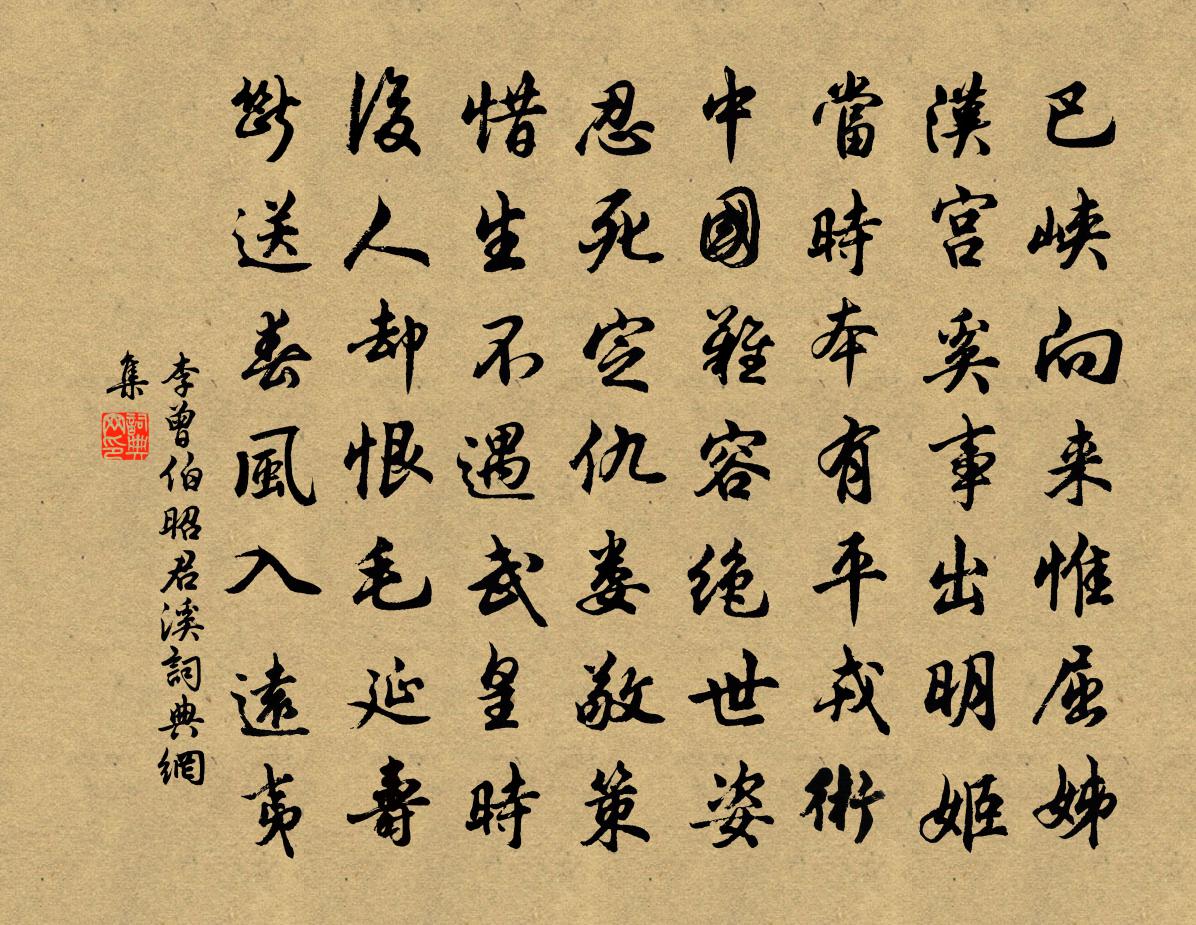 巴峽向来惟屈姊
漢宮奚事出明姬
當時本有平戎術
中國難容絶世姿
忍死定仇婁敬策
惜生不遇武皇時
後人却恨毛延壽
斷送春風入遠夷
李曾伯昭君溪詞典網
集
詞典網印